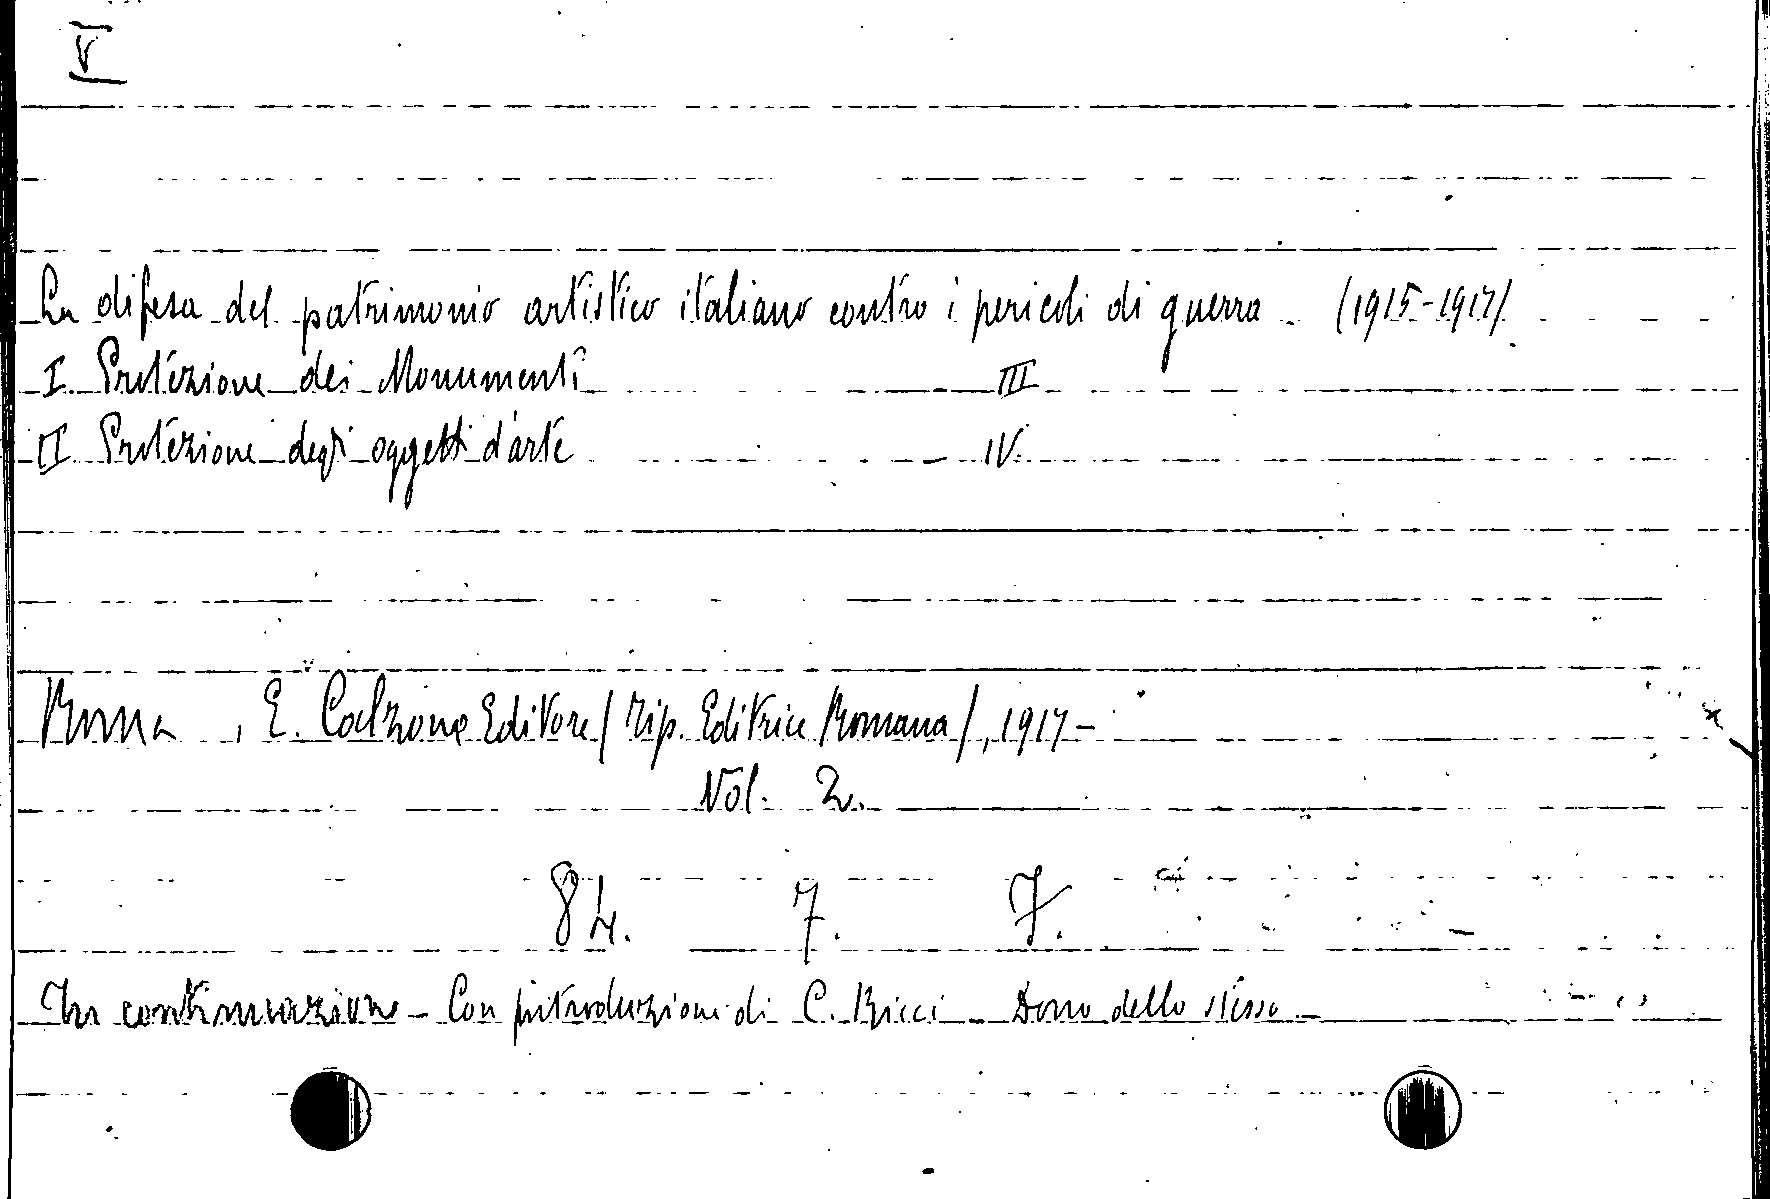 V
La difesa del patrimonio artistico italiano contro i pericoli di guerra (1915-1917)
I Protezione dei Monumenti III
II Protezione degli oggetti d'arte IV.
Roma, E. Calzone Editore / tip. Editrice Romana /, 1917 -
Vol. 2.
84. 7. 7.
In continuazione - Con introduzioni di C. Ricci - Dono dello stesso -